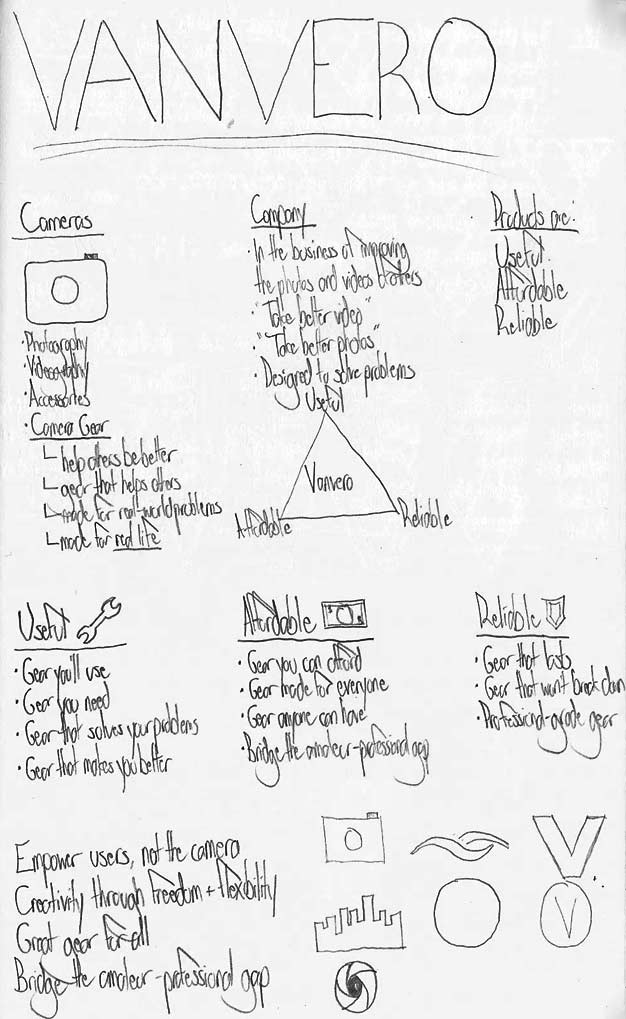 VANVERO
Cameras
· Photography
· Videography
· Accessories
· Camera Gear
help others be better
gear that helps others
made for real-world problems
made for real life
Company
· In the business of improving
the photos and videos of others
· "Take better video"
· "Take better photos"
· Designed to solve problems
Products are:
Useful
Affordable
Reliable
Useful
Vanvero
Affordable
Reliable
Useful
· Gear you'll use
· Gear you need
· Gear that solves your problems
· Gear that makes you better
Affordable
· Gear you can afford
· Gear made for everyone
· Gear anyone can have
· Bridge the amateur-professional gap
Reliable
· Gear that lasts
· Gear that won't break down
· Professional-grade gear
Empower users, not the camera
Creativity through freedom + flexibility
Great gear for all
Bridge the amateur-professional gap
V
V